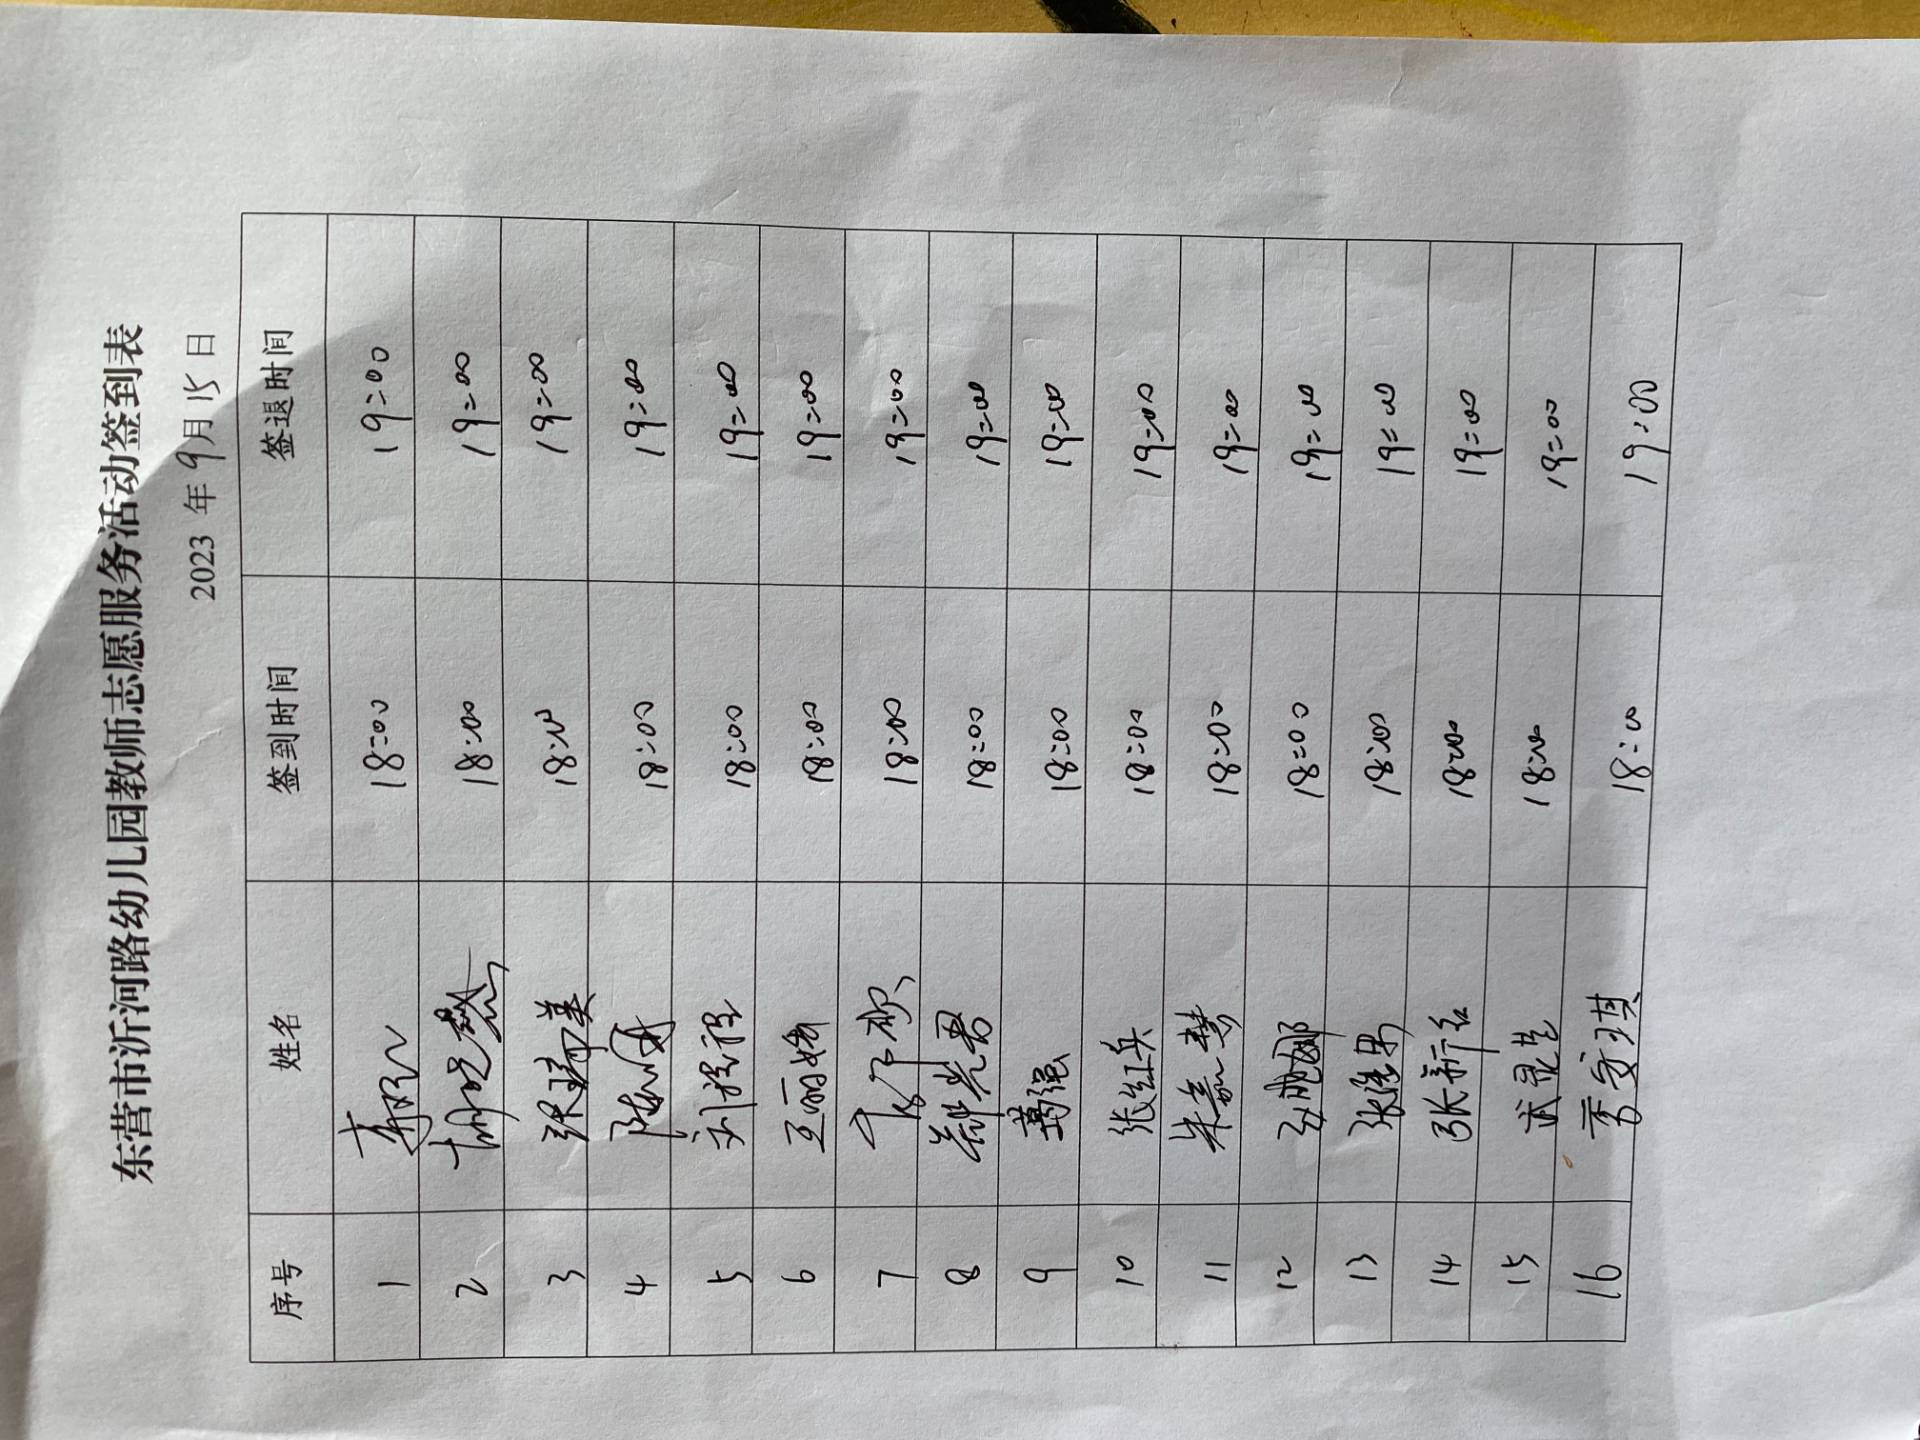 东营市沂河路幼儿园教师志愿服务活动签到表
2023 年 9 月 15 日
序号 姓名 签到时间 签退时间
1 18:00 19:00
2 18:00 19:00
3 18:00 19:00
4 18:00 19:00
5 18:00 19:00
6 18:00 19:00
7 18:00 19:00
8 18:00 19:00
9 葛强 18:00 19:00
10 张红兵 18:00 19:00
11 朱嘉慧 18:00 19:00
12 18:00 19:00
13 18:00 19:00
14 张新红 18:00 19:00
15 18:00 19:00
16 18:00 19:00